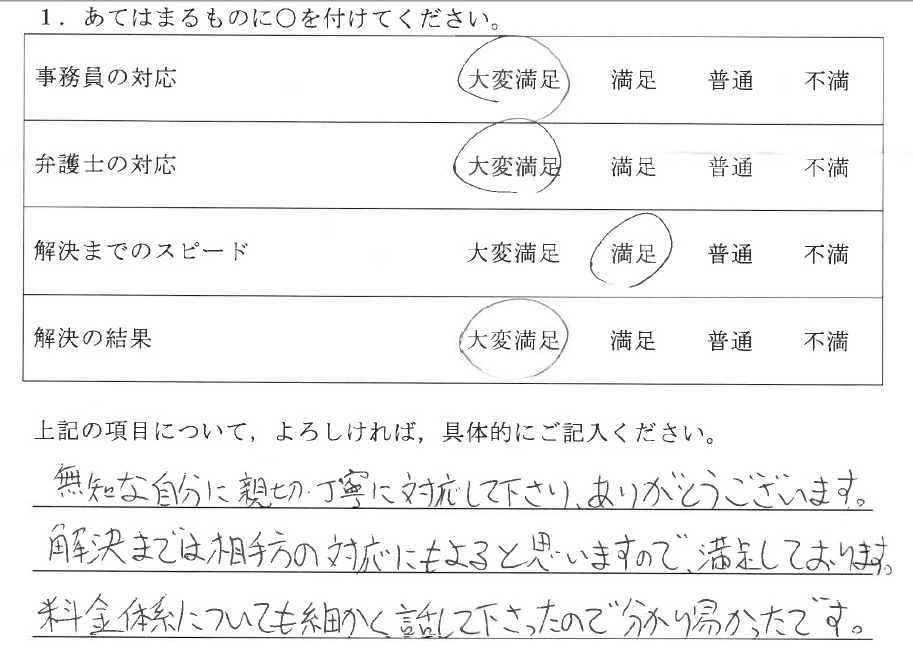 1．あてはまるものに○を付けてください。
事務員の対応 大変満足 満足 普通 不満
弁護士の対応 大変満足 満足 普通 不満
解決までのスピード 大変満足 満足 普通 不満
解決の結果 大変満足 満足 普通 不満
上記の項目について，よろしければ，具体的にご記入ください。
無知な自分に親切・丁寧に対応して下さり、ありがとうございます。
解決までは相手方の対応にもよると思いますので、満足しております。
料金体系についても細かく話して下さったので分かり易かったです。